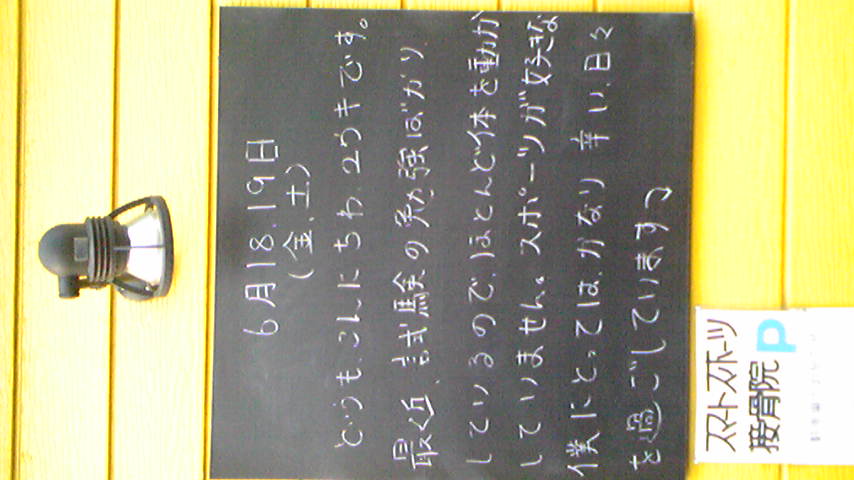 6月18.19日
(金.土)
どうも、こんにちわ、ユウキです。
最近、試験の勉強ばかり
しているので、ほとんど体を動か
していません。スポーツが好きな
僕にとっては、かなり辛い日々
を過ごしています
スマートスポーツ
接骨院
P